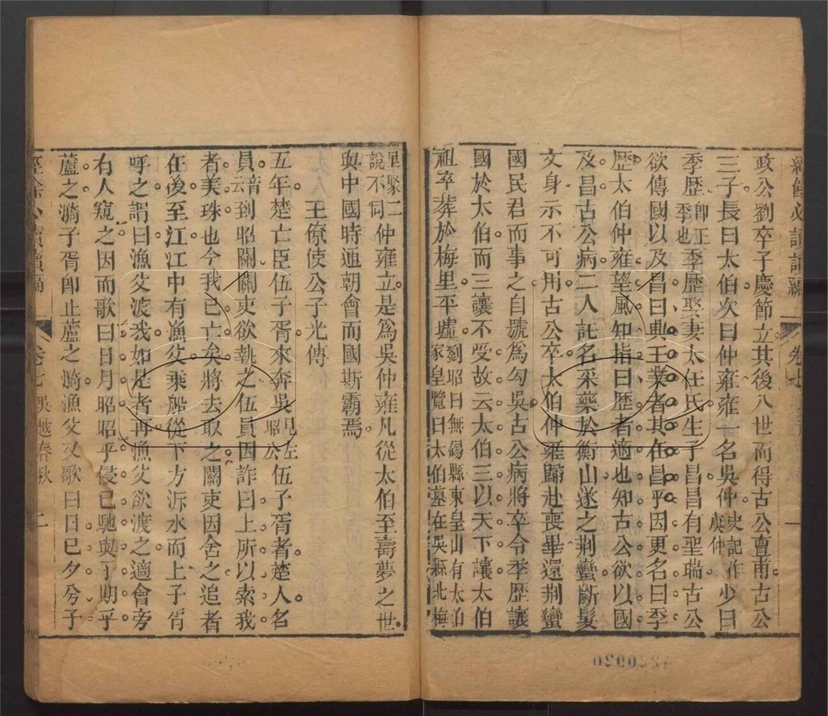 經餘必讀續編
卷七
一
政公劉卒子慶節立其後八世而得古公亶甫古公
三子長曰太伯次曰仲雍雍一名吳仲史記作虞仲少曰
季歷即王季也季歷娶妻太任氏生子昌昌有聖瑞古公
欲傳國以及昌曰興王業者其在昌乎因更名曰季
歷太伯仲雍望風知指曰歷者適也知古公欲以國
及昌古公病二人託名采藥於衡山遂之荆蠻斷髮
文身示不可用古公卒太伯仲雍歸赴喪畢還荆蠻
國民君而事之自號為勾吳古公病將卒令季歷讓
國於太伯而三讓不受故云太伯三以天下讓太伯
祖卒葬於梅里平墟劉昭曰無錫縣東皇山有太伯家皇覽曰太伯墓在吳縣北梅
里聚二說不同仲雍立是為吳仲雍凡從太伯至壽夢之世
與中國時通朝會而國斯霸焉
王僚使公子光傳
五年楚亡臣伍子胥來奔吳見左昭公伍子胥者楚人名
員音云到昭關關吏欲執之伍員因詐曰上所以索我
者美珠也今我已亡矣將去取之關吏因舍之追者
在後至江江中有漁父乘船從下方泝水而上子胥
呼之謂曰漁父渡我如是者再漁父欲渡之適會旁
有人窺之因而歌曰日月昭昭乎侵已馳與子期乎
蘆之漪子胥即止蘆之漪漁父又歌曰日已夕兮子
經餘必讀續編
卷七
吳越春秋
二